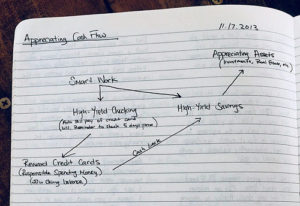 Appreciating Cash Flow
11.17.2013
Appreciating Assets
(Investments, Real Estate, etc)
Smart Work
High-Yield Checking
High-Yield Savings
(Auto bill pay of credit card)
(Cal. Reminder to check 5 days prior)
Cash back
Reward Credit Cards
(Responsible Spending Money)